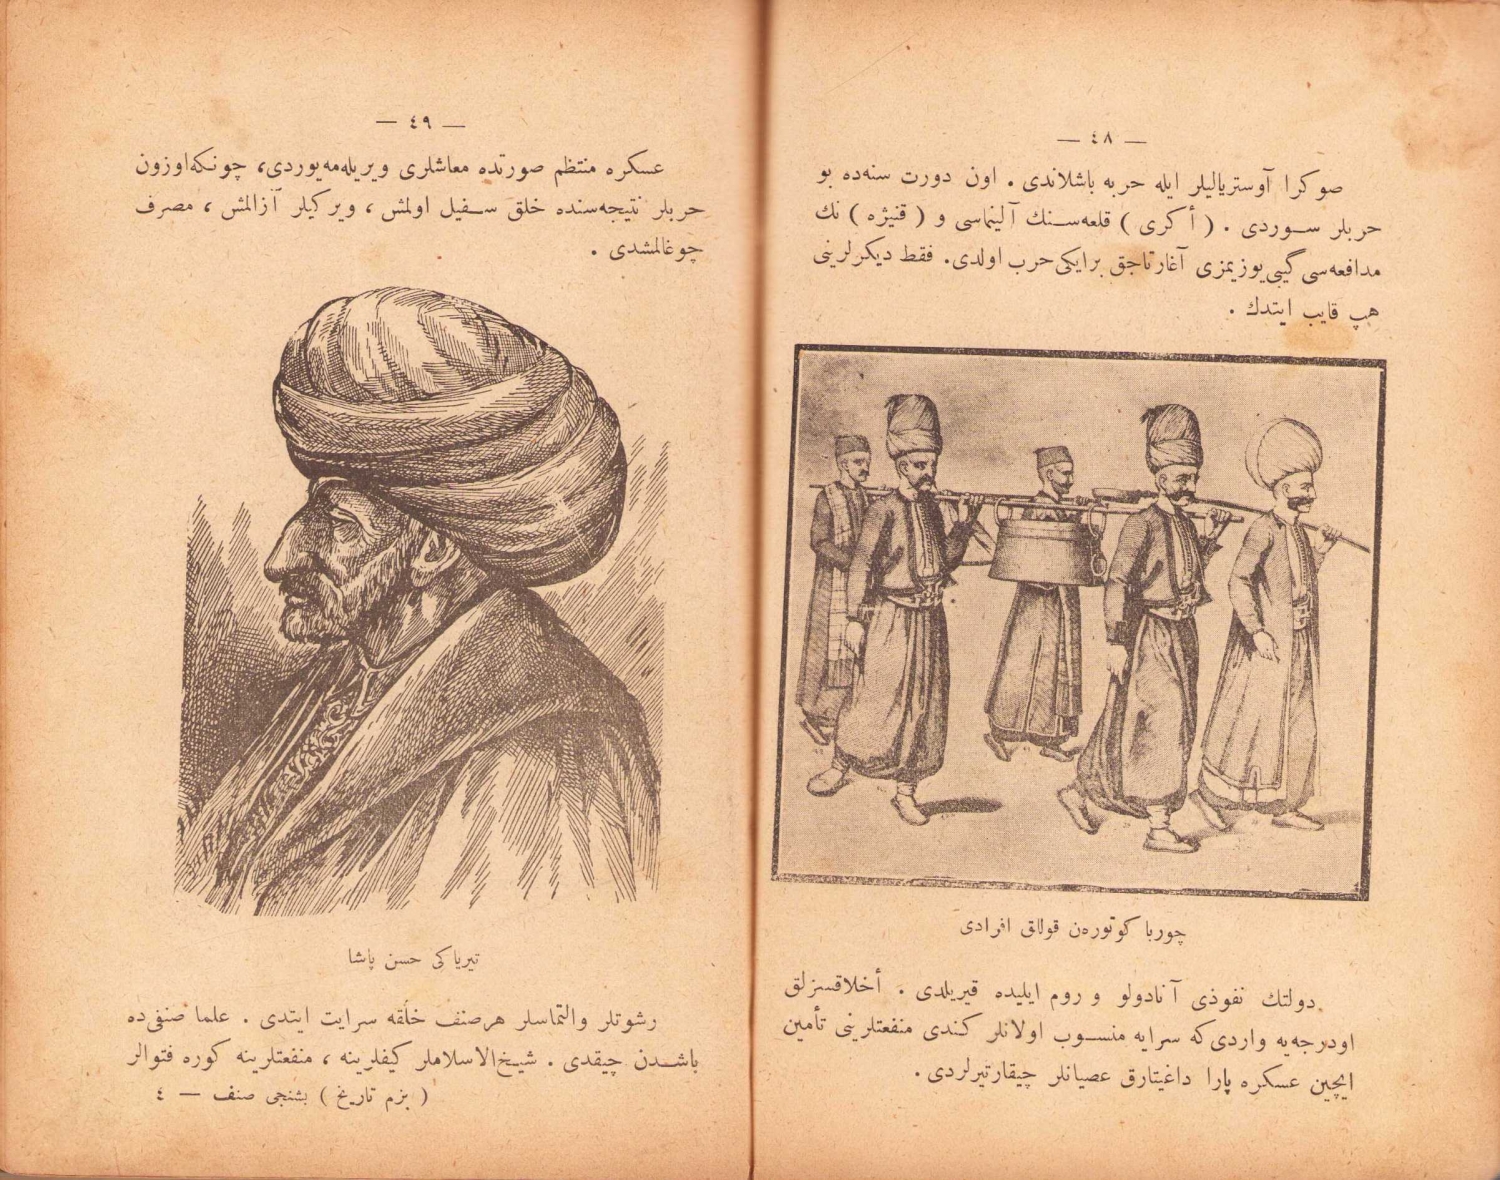 — ٤٨ —
صوكرا آوستريالیلر ايله حربه باشلاندی . اون دورت سنه‌ده بو
حربلر سوردی . ( أكری ) قلعه‌سنك آلینماسی و ( قنیژه ) نك
مدافعه‌سی گیبی یوزیمزی آغارتاجق برایكی حرب اولدی. فقط دیكرلرینی
هپ قایب ایتدك .
چوربا كوتوره‌ن قوللق افرادی
دولتك نفوذی آنادولو و روم ایلیده قیریلدی . أخلاقسزلق
اودرجه‌یه واردی‌كه سرایه منسوب اولانلر كندی منفعتلرینی تأمین
ایچین عسكره پارا داغیتارق عصیانلر چیقارتیرلردی .
— ٤٩ —
عسكره منتظم صورتده معاشلری ویریله‌مه‌یوردی، چونكه‌اوزون
حربلر نتیجه‌سنده خلق سفیل اولمش ، ویركیلر آزالمش ، مصرف
چوغالمشدی .
تیریاكی حسن پاشا
رشوتلر والتماسلر هرصنف خلقه سرایت ایتدی . علما صنفی‌ده
باشدن چیقدی . شیخ‌الاسلاملر كیفلرینه ، منفعتلرینه كوره فتوالر
( بزم تاریخ ) بشنجی صنف — ٤